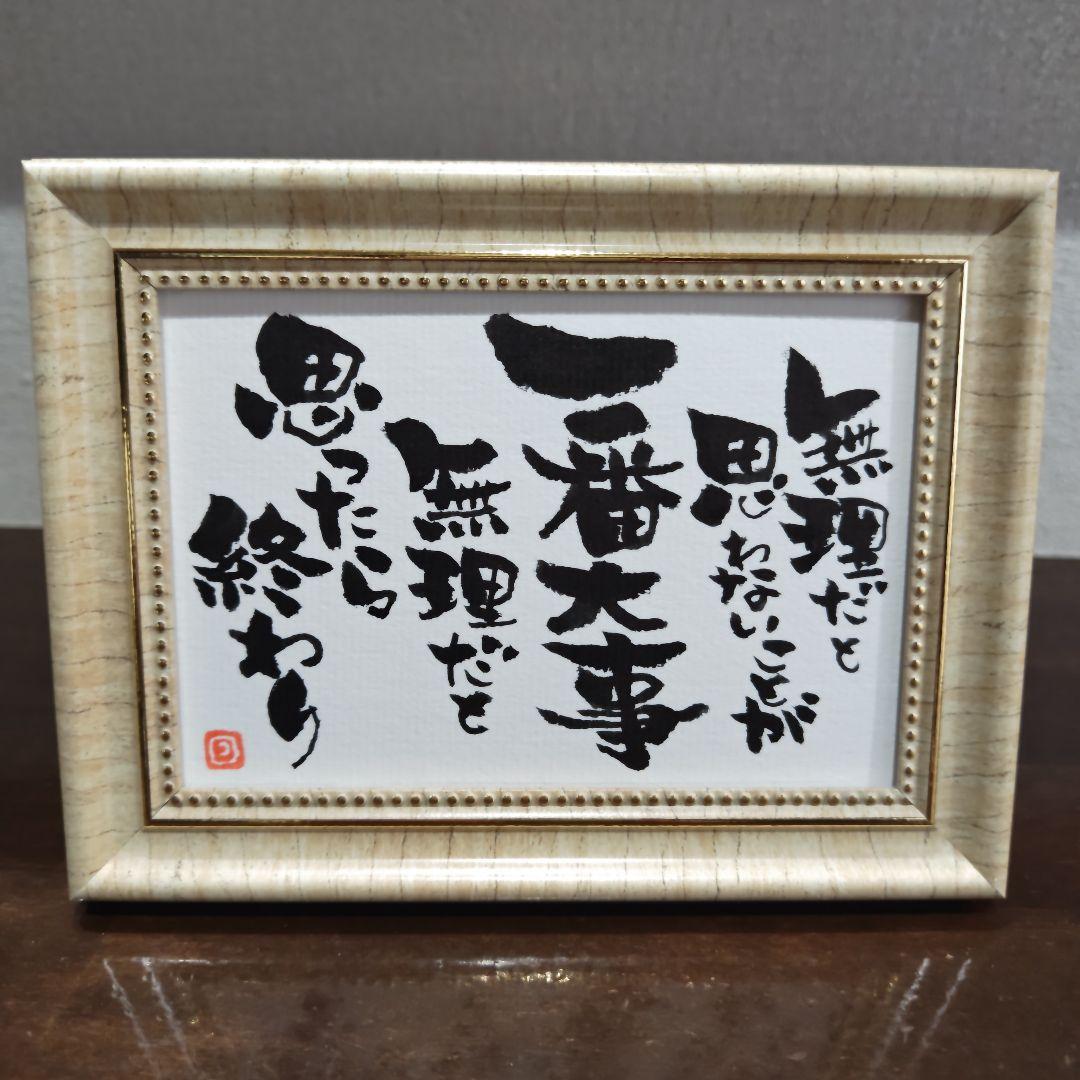 無理だと
思わないことが
一番大事
無理だと
思ったら
終わり